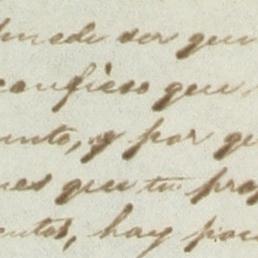 puede ser que
confieso que
unto, y por qu
nes que tu pro
entos, hay poc